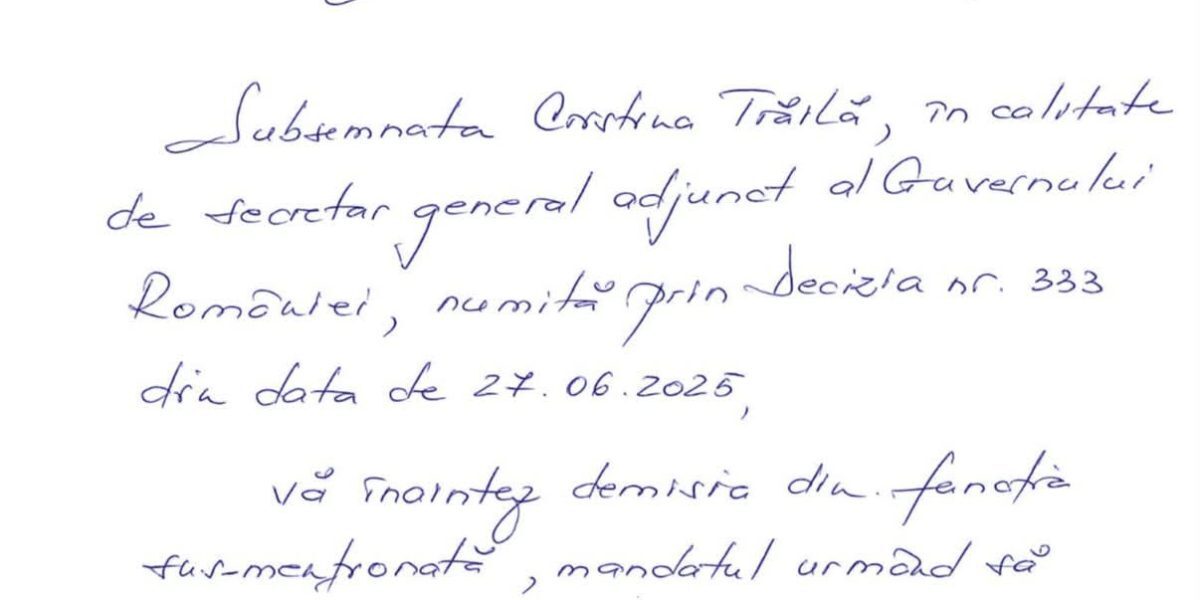 Subsemnata Cristina Trăilă, în calitate
de secretar general adjunct al Guvernului
României, numită prin Decizia nr. 333
din data de 27.06.2025,
vă înaintez demisia din funcția
sus-menționată, mandatul urmând să